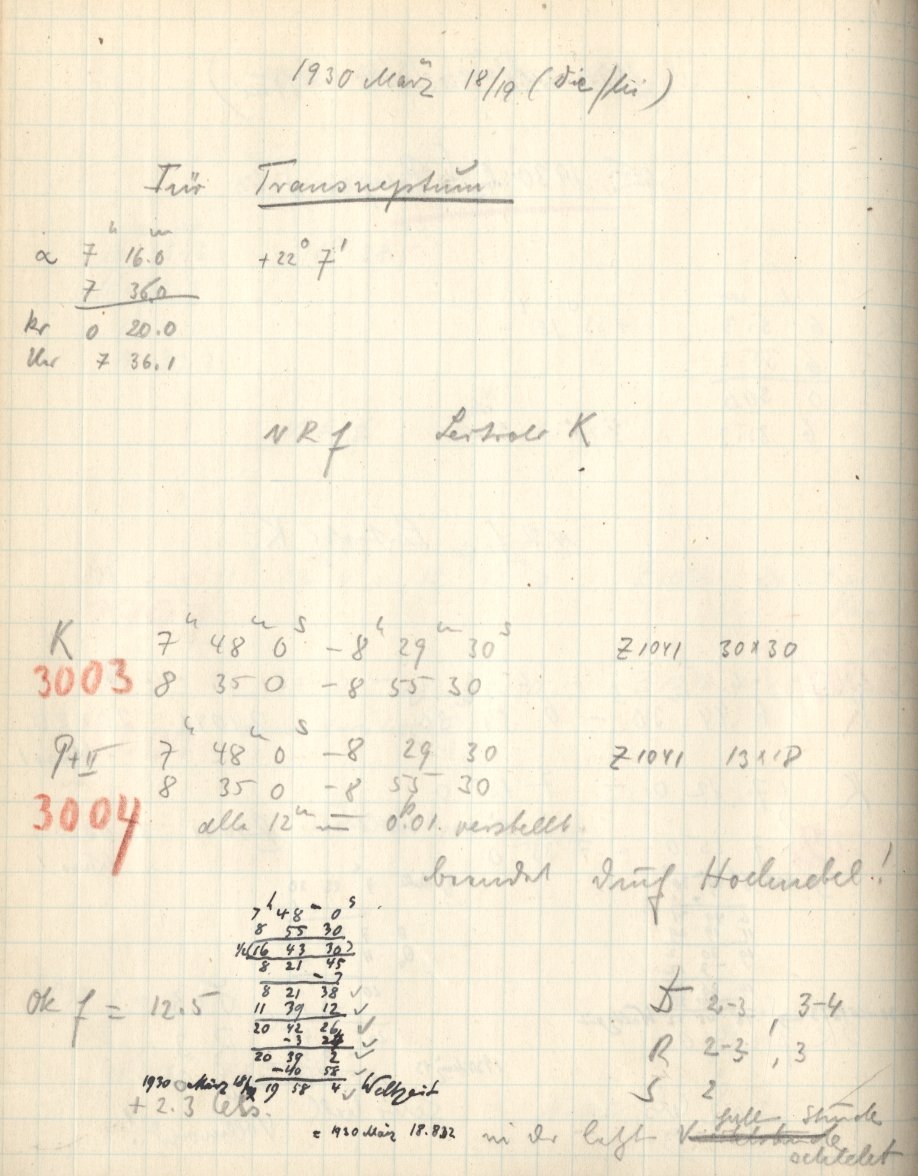 1930 März 18/19 (Die/Mi)
Für Transneptun
α 7h 16.m0 +22° 7'
7 36.0
kr 0 20.0
Uhr 7 36.1
NRf Leitrohr K
K 7h 48m 0s - 8h 29m 30s Z1041 30×30
3003 8 35 0 - 8 55 30
P+II 7h 48m 0s - 8 29 30 Z1041 13×18
8 35 0 - 8 55 30
3004 alle 12m 0.01 verstellt.
beendet durch Hochnebel!
7h 48m 0s
8 55 30
½(16 43 30)
8 21 45
- 7
8 21 38 ✓
Ok f = 12.5
11 39 12 ✓
20 42 26 ✓
-3 24 ✓
20 39 2 ✓
-40 58 ✓
1930 März 18/19 19 58 4 ✓ Weltzeit
+ 2.3 Cels.
= 1930 März 18.832
D 2-3, 3-4
R 2-3, 3
S 2
in der letzt Viertelstunde
Stunde